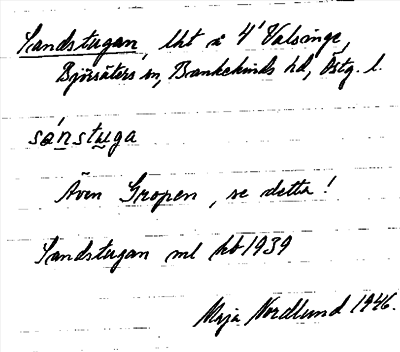 Sandstugan, lht å 4' Valsinge,
Björsäters sn, Bankekinds hd, Östg. l.
sánstuga
Även Gropen, se detta!
Sandstugan ml hb 1939
Maja Nordlund 1946.